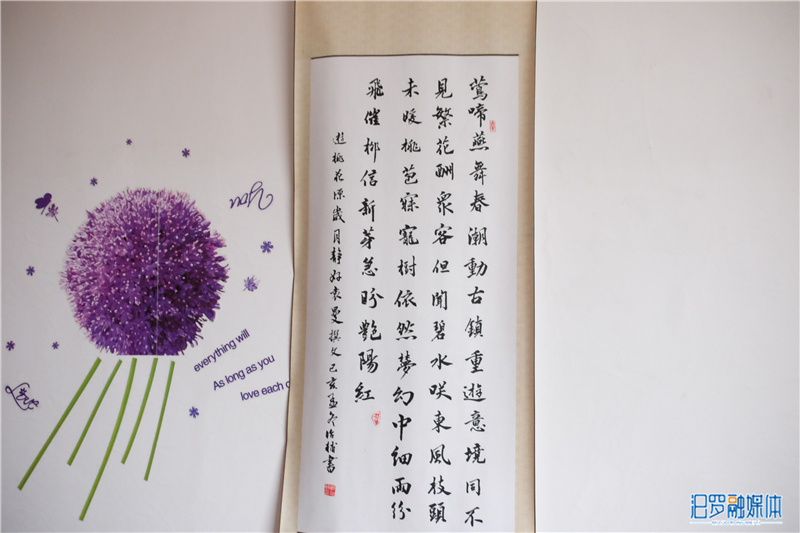 鶯啼燕舞春潮動古鎮重遊意境同不
見繁花酬衆客但聞碧水咲東風枝頭
未暖桃苞寐寵樹依然夢幻中細雨紛
飛催柳信新芽急盼艷陽紅
遊桃花源歲月靜好袁曼撰文己亥孟冬書
you
everything will
As long as you
love each o
Love
汨罗融媒体